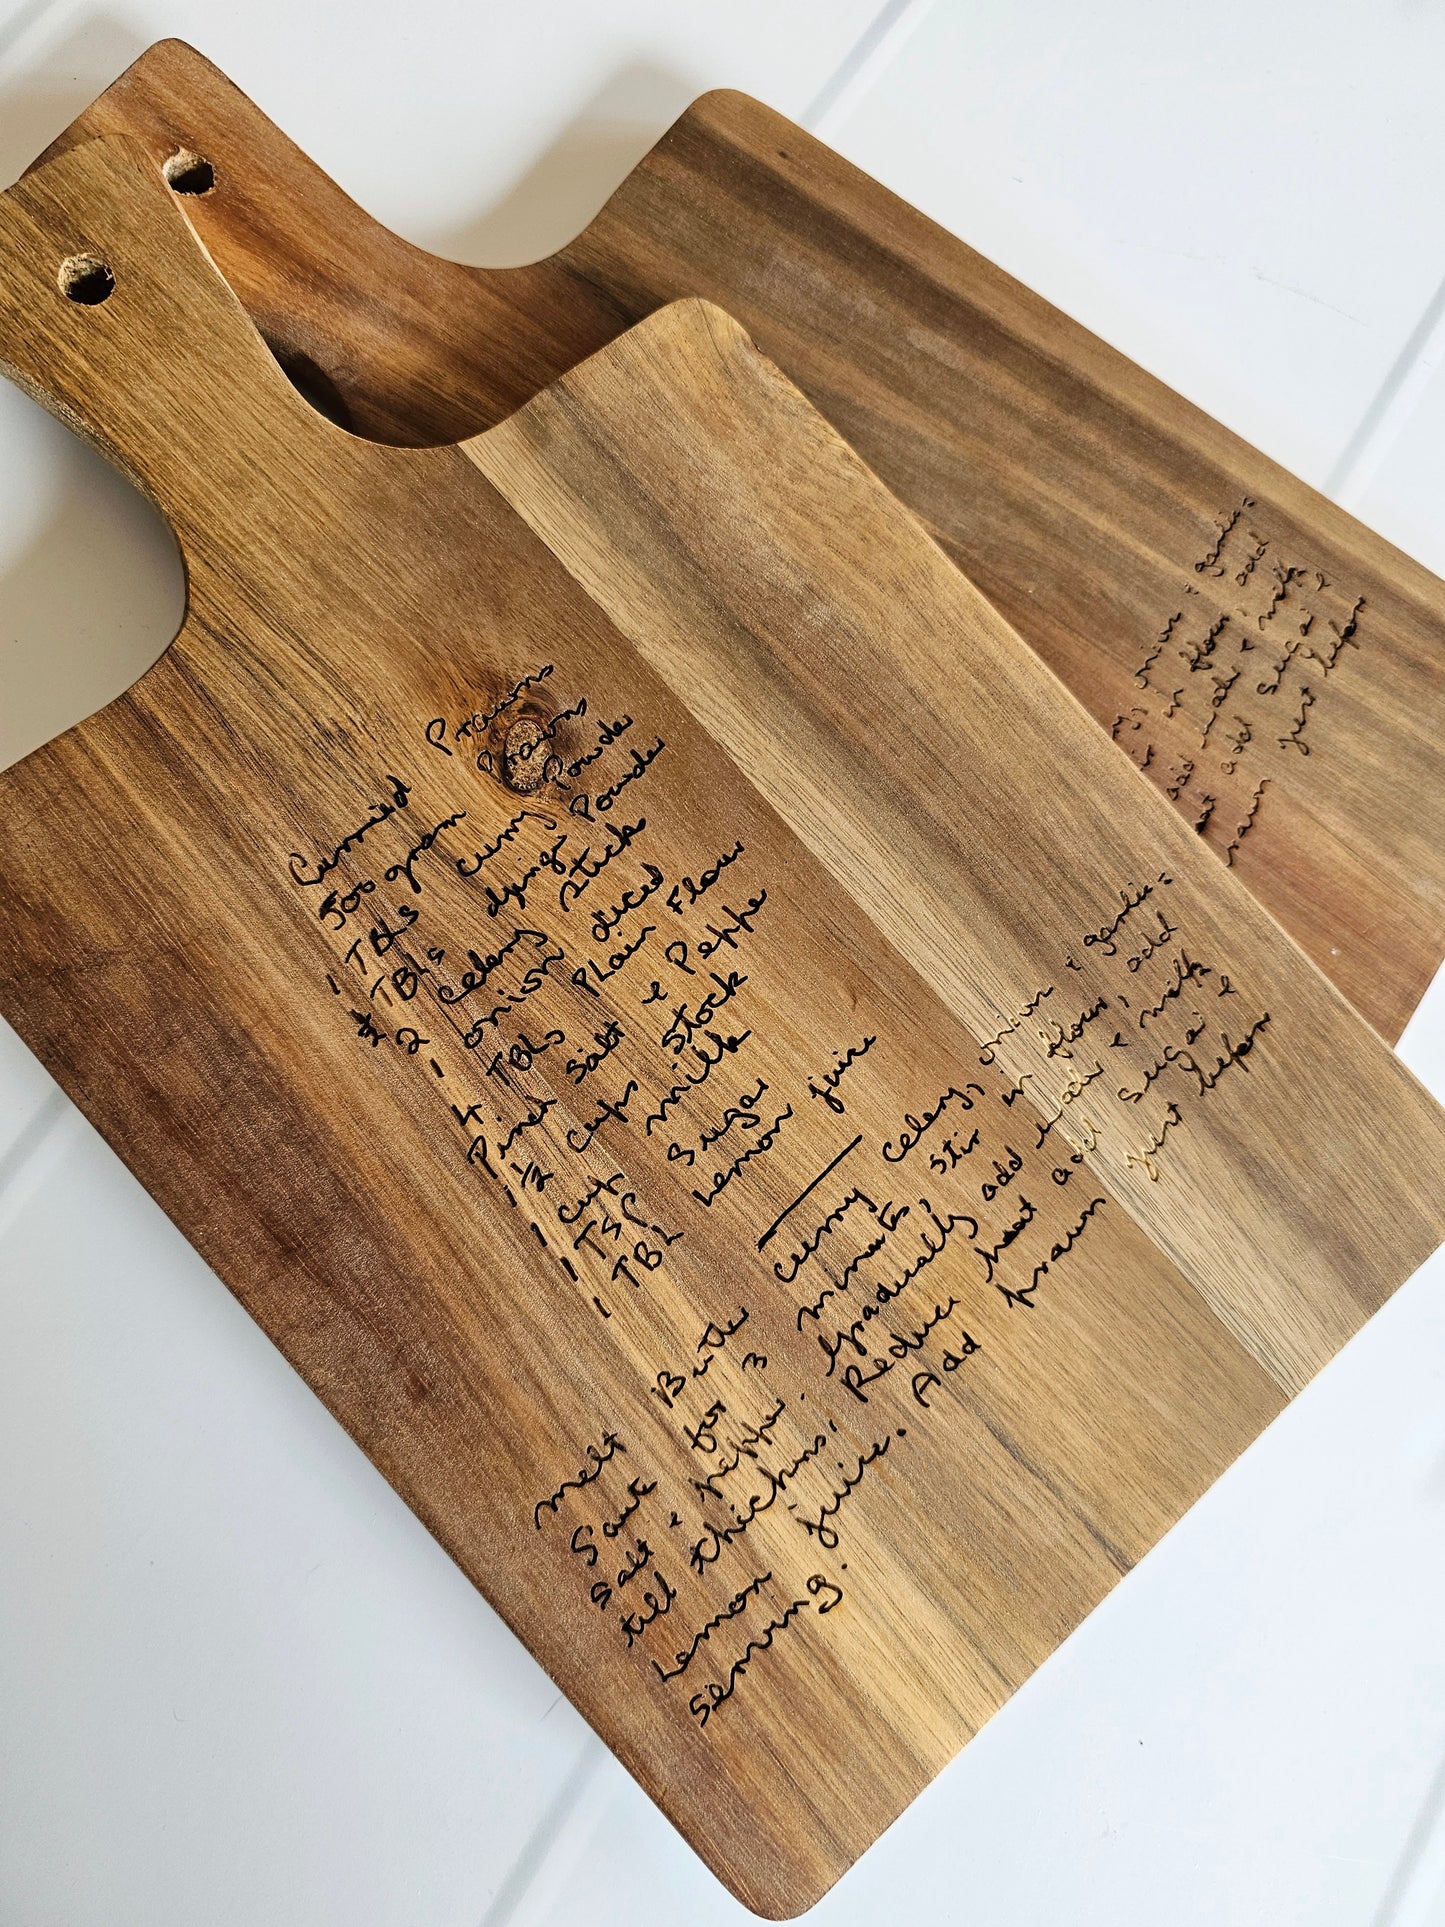 Curried Prawns
500 gram Prawns
1 TBLS curry Powder
½ TBLS Powder
2 celery stick
1 onion diced
4 TBLS Plain Flour
Pinch salt & Pepper
1½ cups stock
1 cup milk
1 TSP sugar
1 TBL Lemon juice
melt Butter curry celery, onion & garlic =
Saute for 3 minutes, stir in flour, add
Salt & pepper. Gradually add water & milk
till thickens, Reduce heat add Sugar &
Lemon juice. Add prawn just before
serving.
onion & garlic =
in flour, add
add water & milk
add Sugar &
prawn just before